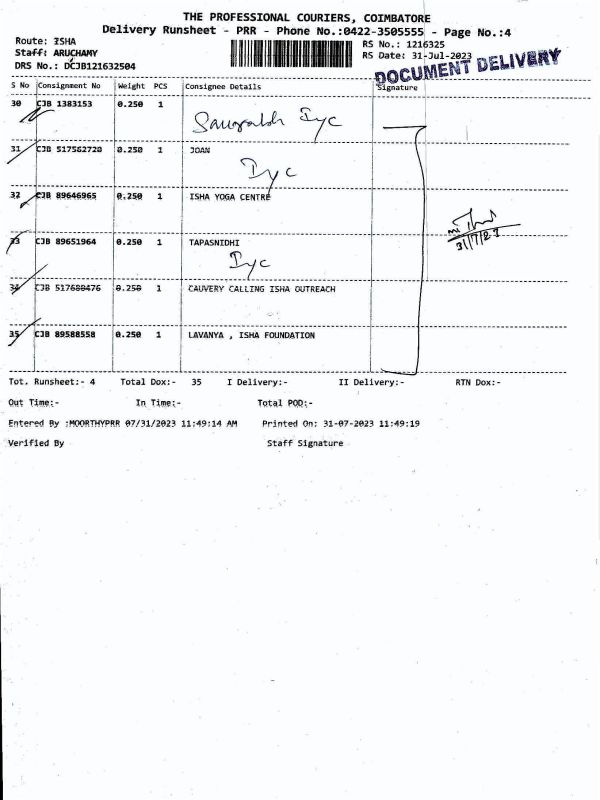 THE PROFESSIONAL COURIERS, COIMBATORE
Delivery Runsheet - PRR - Phone No.:0422-3505555 - Page No.:4
Route: ISHA
RS No.: 1216325
Staff: ARUCHAMY
RS Date: 31-Jul-2023
DRS No.: DCJB121632504
DOCUMENT DELIVERY
S No Consignment No Weight PCS Consignee Details Signature
30 CJB 1383153 0.250 1
Saurabh Iyc
31 CJB 517562720 0.250 1 JOAN
Iyc
32 CJB 89646965 0.250 1 ISHA YOGA CENTRE
33 CJB 89651964 0.250 1 TAPASNIDHI
Iyc
31/7/23
34 CJB 517680476 0.250 1 CAUVERY CALLING ISHA OUTREACH
35 CJB 89588558 0.250 1 LAVANYA , ISHA FOUNDATION
Tot. Runsheet:- 4 Total Dox:- 35 I Delivery:- II Delivery:- RTN Dox:-
Out Time:- In Time:- Total POD:-
Entered By :MOORTHYPRR 07/31/2023 11:49:14 AM Printed On: 31-07-2023 11:49:19
Verified By Staff Signature